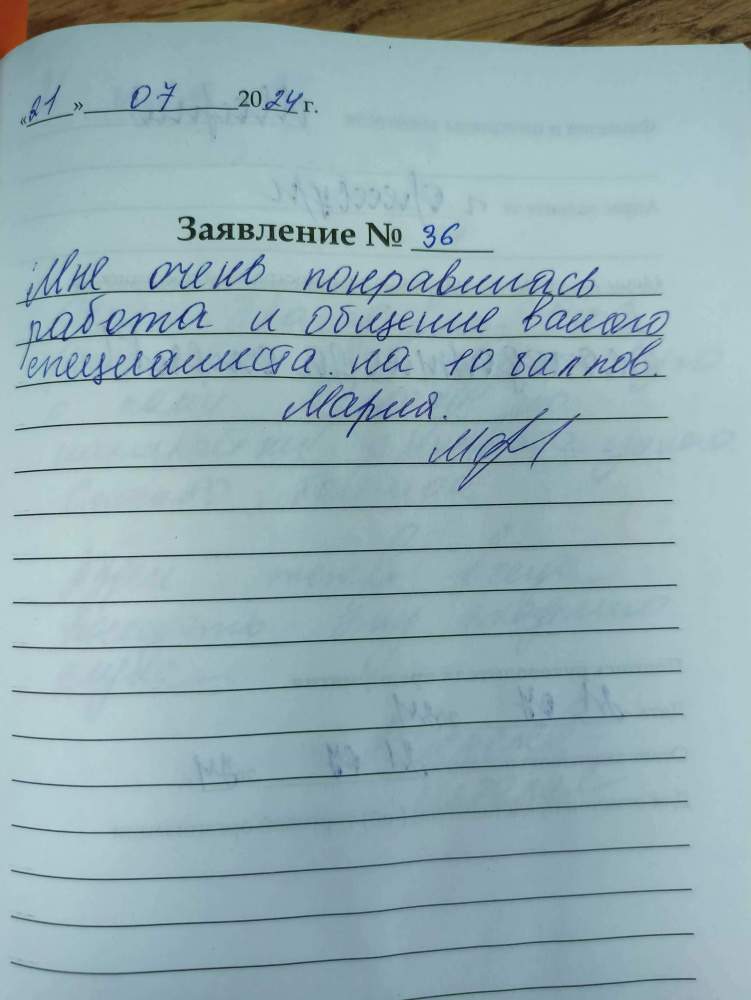 «21» 07 2024 г.
Заявление № 36
Мне очень понравилась
работа и общение вашего
специалиста. на 10 баллов.
Мария.